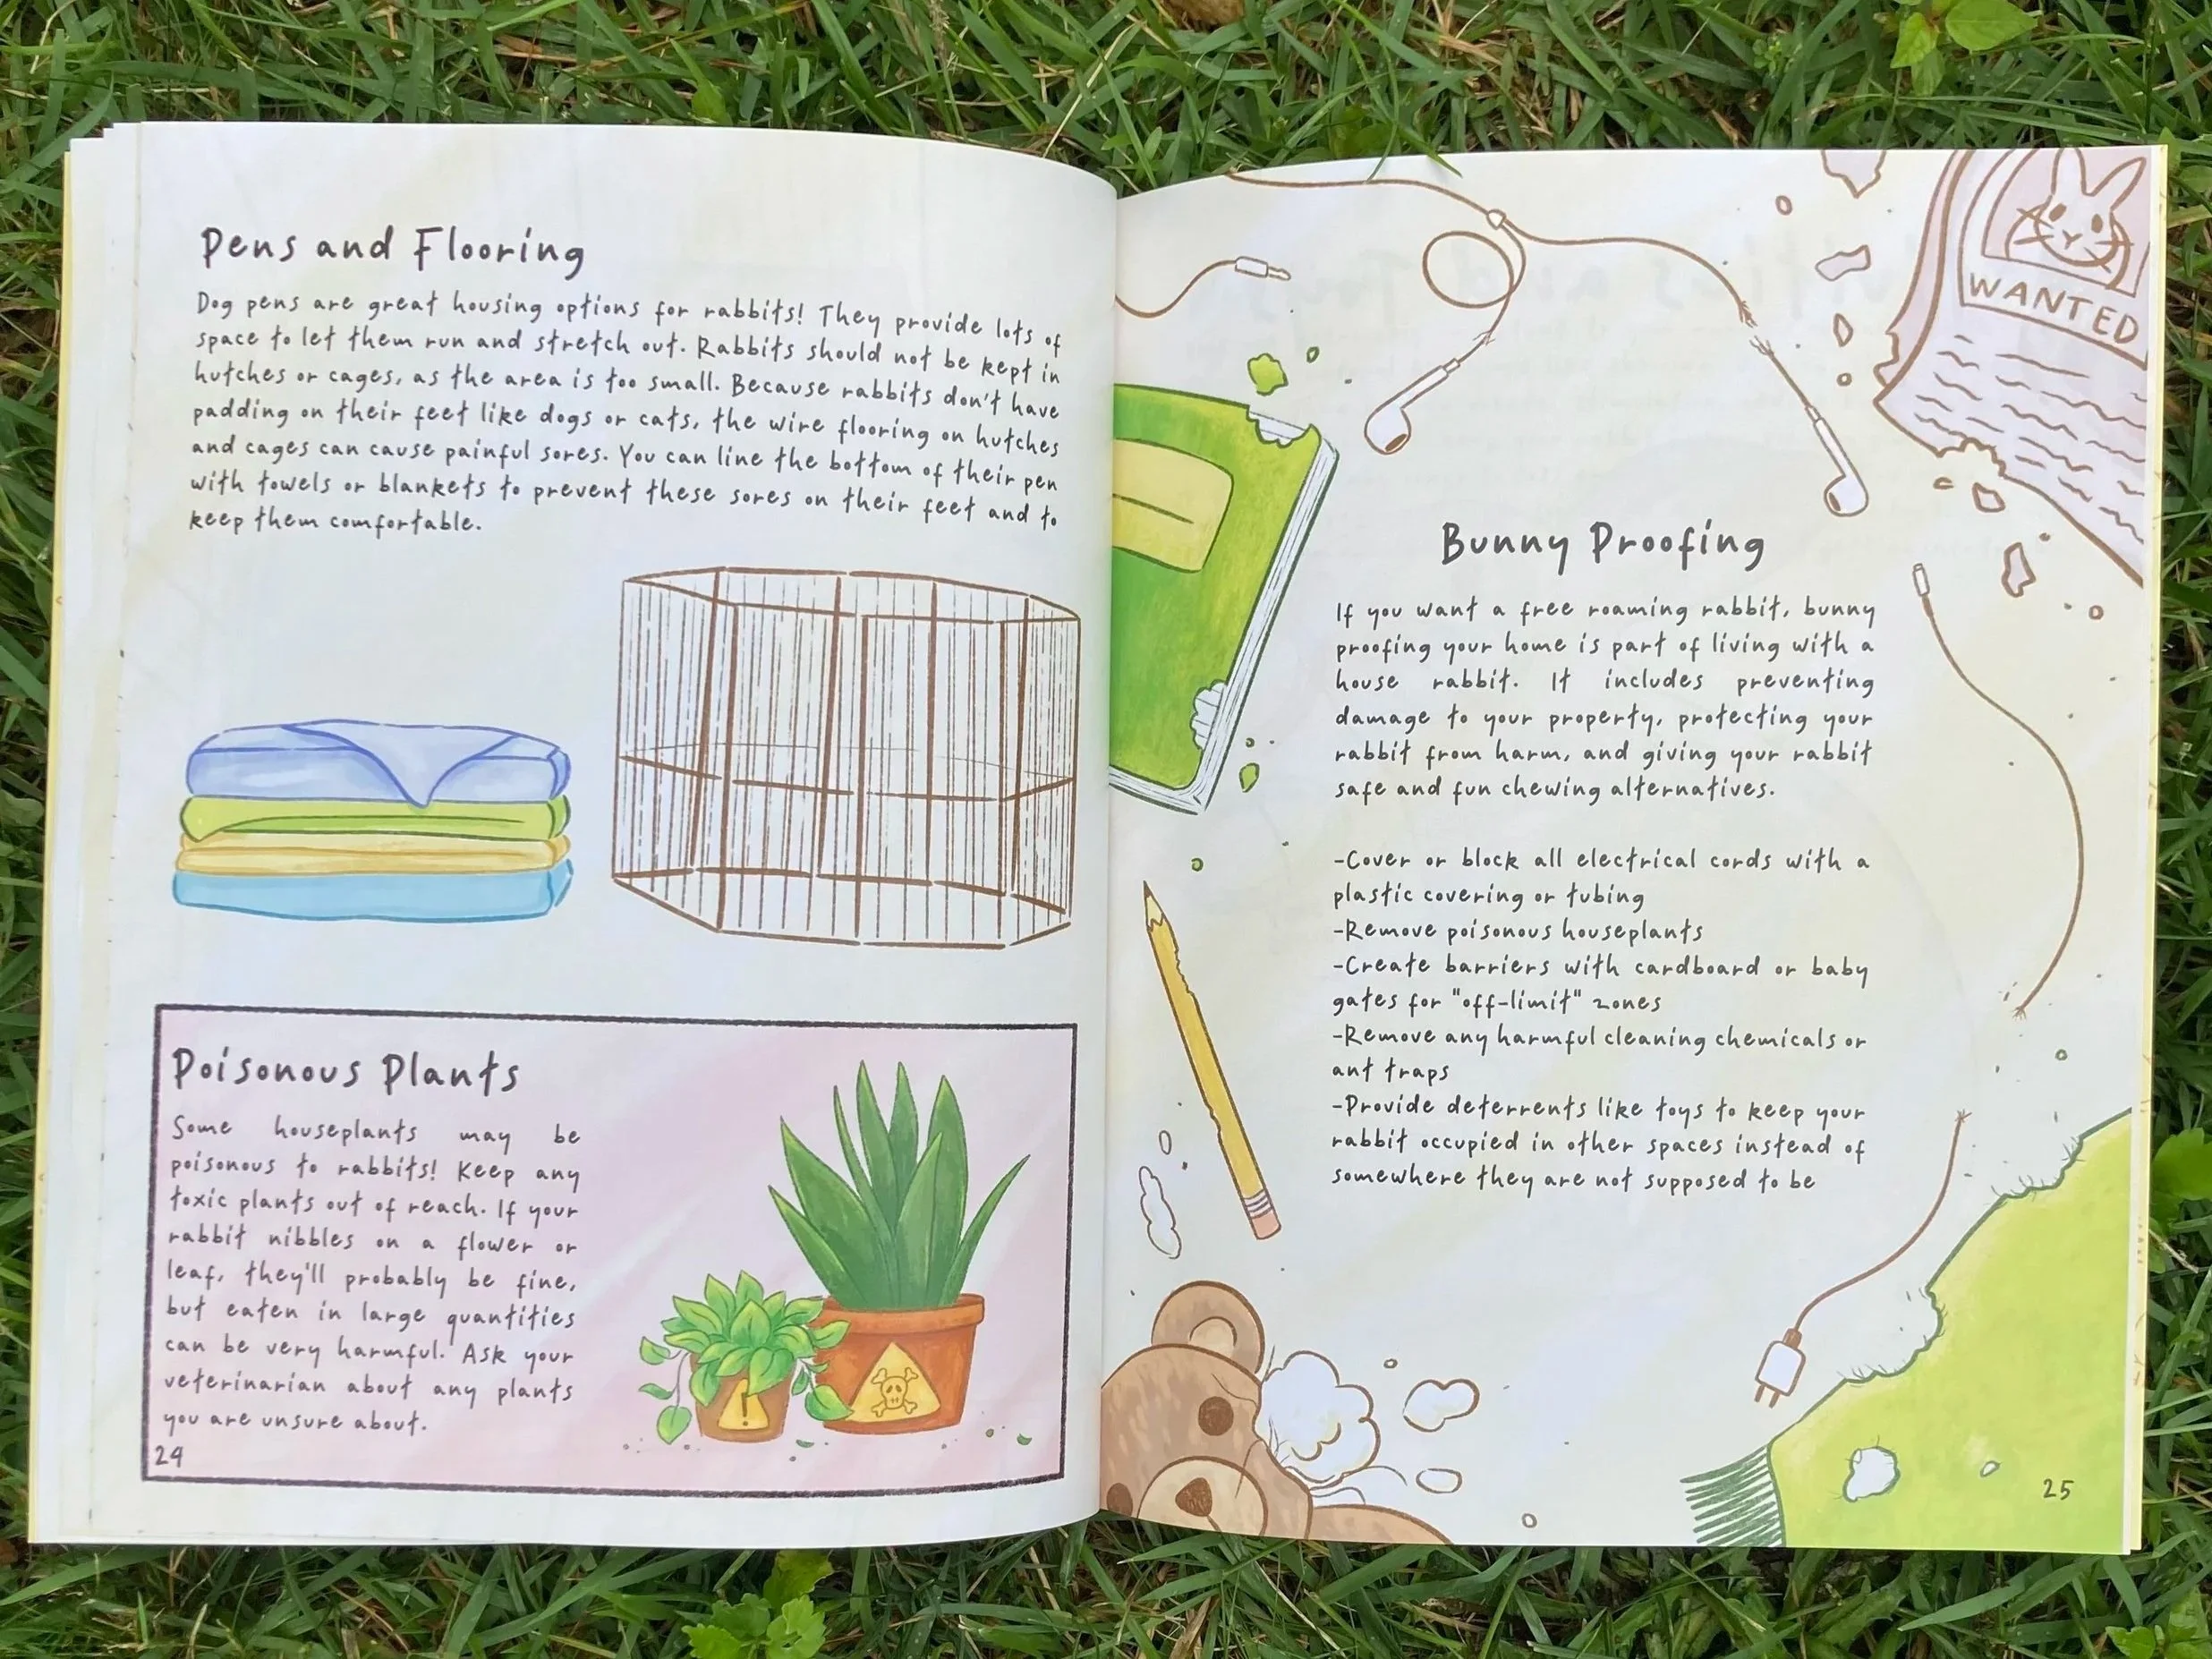 Pens and Flooring
Dog pens are great housing options for rabbits! They provide lots of
space to let them run and stretch out. Rabbits should not be kept in
hutches or cages, as the area is too small. Because rabbits don't have
padding on their feet like dogs or cats, the wire flooring on hutches
and cages can cause painful sores. You can line the bottom of their pen
with towels or blankets to prevent these sores on their feet and to
keep them comfortable.
Poisonous Plants
Some houseplants may be
poisonous to rabbits! Keep any
toxic plants out of reach. If your
rabbit nibbles on a flower or
leaf, they'll probably be fine,
but eaten in large quantities
can be very harmful. Ask your
veterinarian about any plants
you are unsure about.
24
WANTED
Bunny Proofing
If you want a free roaming rabbit, bunny
proofing your home is part of living with a
house rabbit. It includes preventing
damage to your property, protecting your
rabbit from harm, and giving your rabbit
safe and fun chewing alternatives.
-Cover or block all electrical cords with a
plastic covering or tubing
-Remove poisonous houseplants
-Create barriers with cardboard or baby
gates for "off-limit" zones
-Remove any harmful cleaning chemicals or
ant traps
-Provide deterrents like toys to keep your
rabbit occupied in other spaces instead of
somewhere they are not supposed to be
25